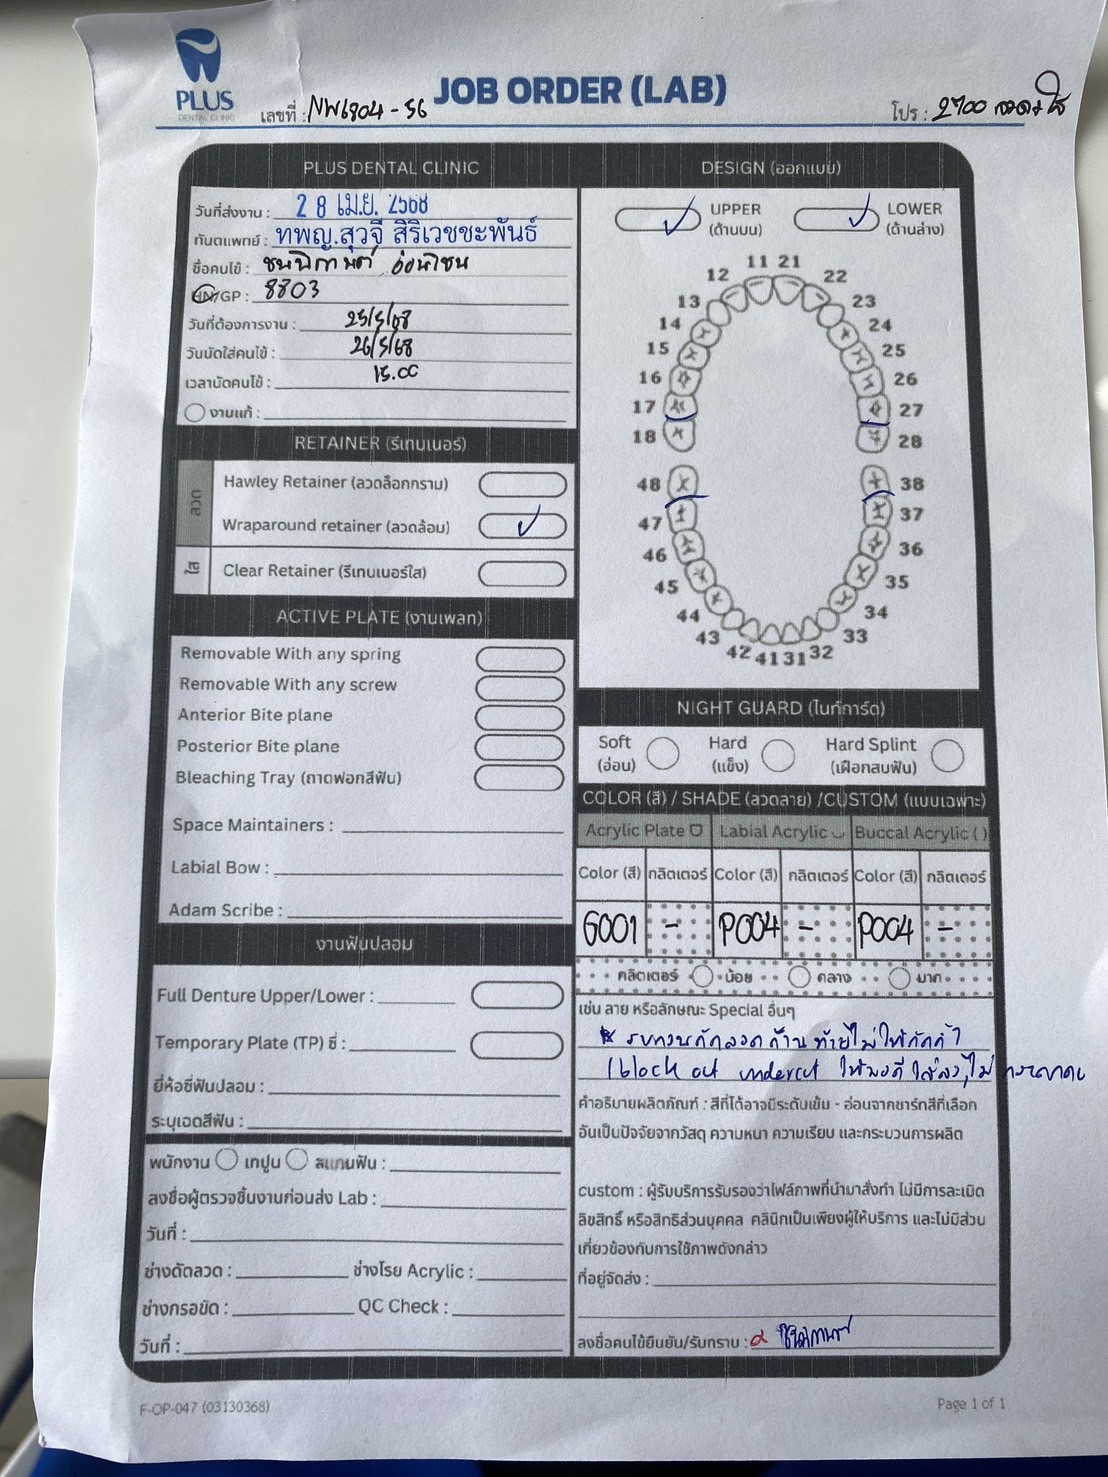 PLUS
DENTAL CLINIC
JOB ORDER (LAB)
เลขที่ : NW6804-56
โปร : 2700
PLUS DENTAL CLINIC
วันที่ส่งงาน : 28 เม.ย. 2568
ทันตแพทย์ : ทพญ.สุวจี สิริเวชชะพันธ์
ชื่อคนไข้ :
HN/GP : 8803
วันที่ต้องการงาน : 25/5/68
วันนัดใส่คนไข้ : 26/5/68
เวลานัดคนไข้ : 15.00
งานแก้ :
RETAINER (รีเทนเนอร์)
ลวด
Hawley Retainer (ลวดล็อกกราม)
Wraparound retainer (ลวดล้อม)
ใส
Clear Retainer (รีเทนเนอร์ใส)
ACTIVE PLATE (งานเพลท)
Removable With any spring
Removable With any screw
Anterior Bite plane
Posterior Bite plane
Bleaching Tray (ถาดฟอกสีฟัน)
Space Maintainers :
Labial Bow :
Adam Scribe :
งานฟันปลอม
Full Denture Upper/Lower :
Temporary Plate (TP) ซี่ :
ยี่ห้อซี่ฟันปลอม :
ระบุเฉดสีฟัน :
พนักงาน เทปูน สแกนฟัน :
ลงชื่อผู้ตรวจชิ้นงานก่อนส่ง Lab :
วันที่ :
ช่างดัดลวด : ช่างโรย Acrylic :
ช่างกรอขัด : QC Check :
วันที่ :
DESIGN (ออกแบบ)
UPPER (ด้านบน)
LOWER (ด้านล่าง)
11 21
12 22
13 23
14 24
15 25
16 26
17 27
18 28
48 38
47 37
46 36
45 35
44 34
43 33
42 41 31 32
NIGHT GUARD (ไนท์การ์ด)
Soft (อ่อน)
Hard (แข็ง)
Hard Splint (เฝือกสบฟัน)
COLOR (สี) / SHADE (ลวดลาย) /CUSTOM (แบบเฉพาะ)
Acrylic Plate Labial Acrylic Buccal Acrylic ( )
Color (สี) กลิตเตอร์ Color (สี) กลิตเตอร์ Color (สี) กลิตเตอร์
G001 - P004 - P004 -
กลิตเตอร์ น้อย กลาง มาก
เช่น ลาย หรือลักษณะ Special อื่นๆ
block out undercut
คำอธิบายผลิตภัณฑ์ : สีที่ได้อาจมีระดับเข้ม - อ่อนจากชาร์ทสีที่เลือก
อันเป็นปัจจัยจากวัสดุ ความหนา ความเรียบ และกระบวนการผลิต
custom : ผู้รับบริการรับรองว่าไฟล์ภาพที่นำมาสั่งทำ ไม่มีการละเมิด
ลิขสิทธิ์ หรือสิทธิส่วนบุคคล คลินิกเป็นเพียงผู้ให้บริการ และไม่มีส่วน
เกี่ยวข้องกับการใช้ภาพดังกล่าว
ที่อยู่จัดส่ง :
ลงชื่อคนไข้ยืนยัน/รับทราบ :
F-OP-047 (03130368)
Page 1 of 1